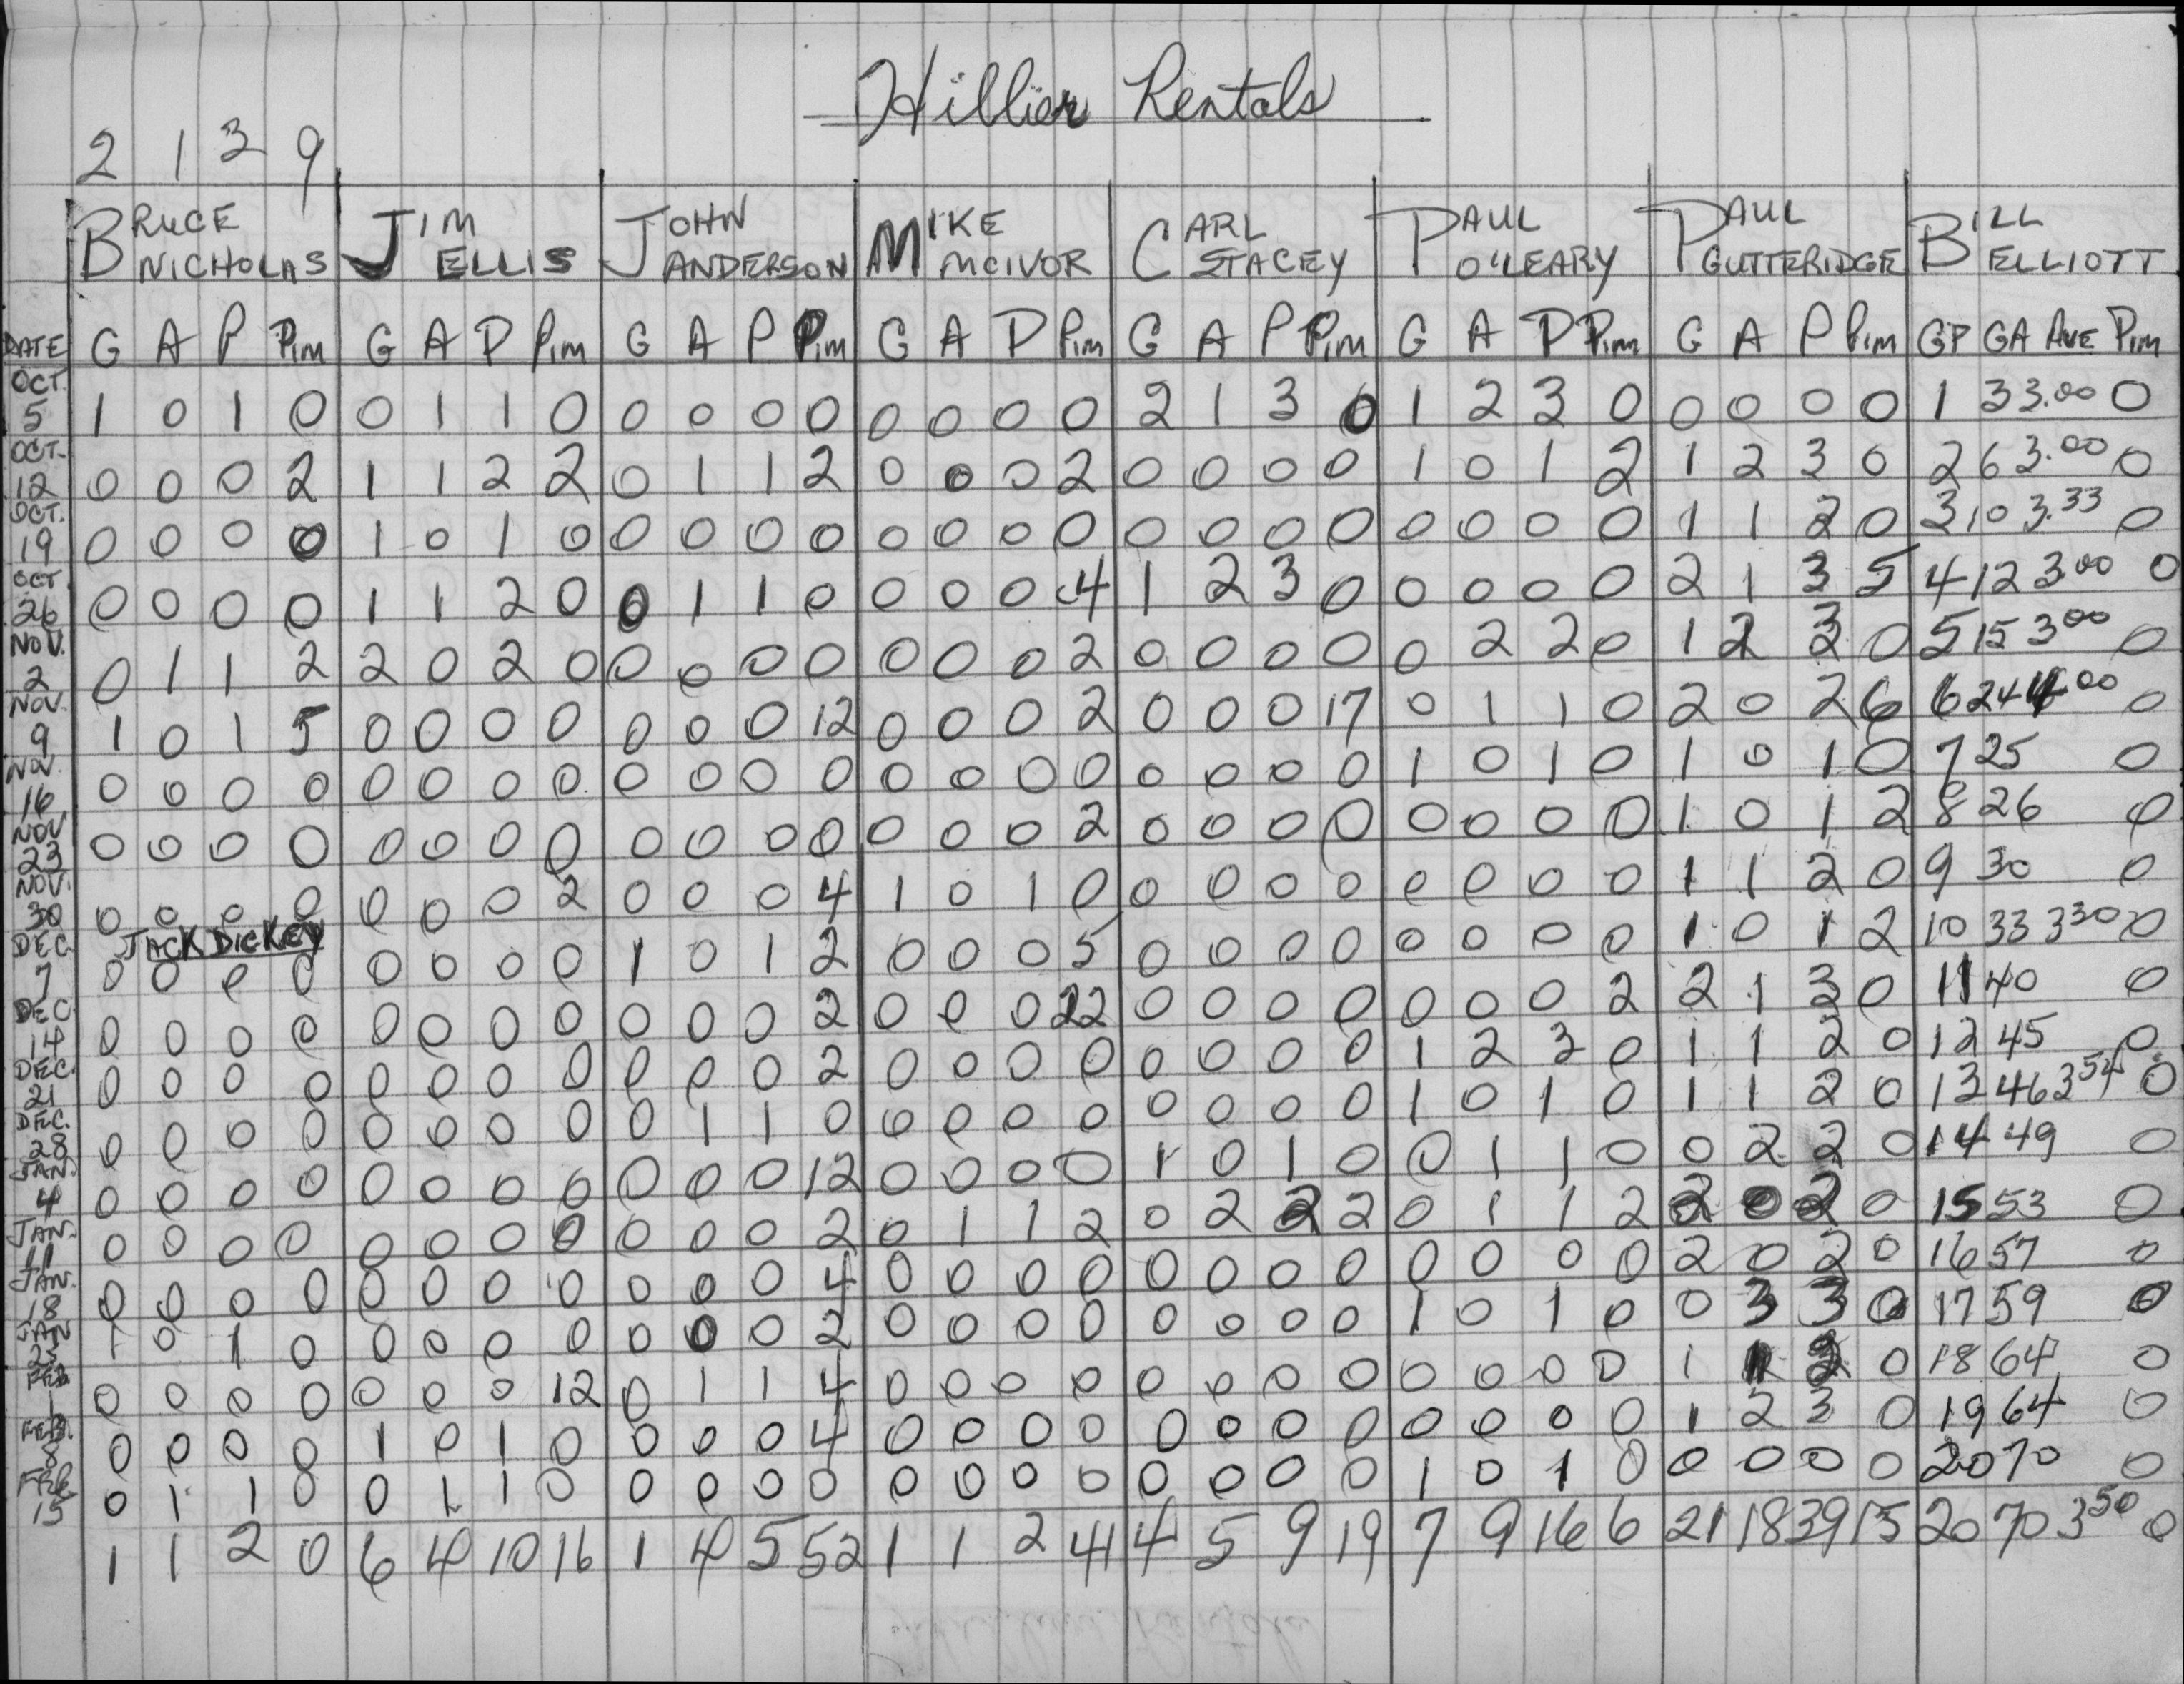 Hillier Rentals
2 1 3 9
BRUCE NICHOLAS JIM ELLIS JOHN ANDERSON MIKE MCIVOR CARL STACEY PAUL O'LEARY PAUL GUTTERIDGE BILL ELLIOTT
DATE G A P PIM G A P PIM G A P PIM G A P PIM G A P PIM G A P PIM G A P PIM GP GA AVE PIM
OCT. 5 1 0 1 0 0 1 1 0 0 0 0 0 0 0 0 0 2 1 3 0 1 2 3 0 0 0 0 0 1 3 3.00 0
OCT. 12 0 0 0 2 1 1 2 2 0 1 1 2 0 0 0 2 0 0 0 0 1 0 1 2 1 2 3 0 2 6 3.00 0
OCT. 19 0 0 0 0 1 0 1 0 0 0 0 0 0 0 0 0 0 0 0 0 0 0 0 0 1 1 2 0 3 10 3.33 0
OCT 26 0 0 0 0 1 1 2 0 0 1 1 0 0 0 0 4 1 2 3 0 0 0 0 0 2 1 3 5 4 12 3.00 0
NOV. 2 0 1 1 2 2 0 2 0 0 0 0 0 0 0 0 2 0 0 0 0 0 2 2 0 1 2 3 0 5 15 3 00 0
NOV. 9 1 0 1 5 0 0 0 0 0 0 0 12 0 0 0 2 0 0 0 17 0 1 1 0 2 0 2 6 6 24 4.00 0
NOV. 16 0 0 0 0 0 0 0 0 0 0 0 0 0 0 0 0 0 0 0 0 1 0 1 0 1 0 1 0 7 25 0
NOV 23 0 0 0 0 0 0 0 0 0 0 0 0 0 0 0 2 0 0 0 0 0 0 0 0 1 0 1 2 8 26 0
NOV. 30 0 0 0 0 0 0 0 2 0 0 0 4 1 0 1 0 0 0 0 0 0 0 0 0 1 1 2 0 9 30 0
JACK DICKEY
DEC. 7 0 0 0 0 0 0 0 0 1 0 1 2 0 0 0 5 0 0 0 0 0 0 0 0 1 0 1 2 10 33 3 30 0
DEC. 14 0 0 0 0 0 0 0 0 0 0 0 2 0 0 0 22 0 0 0 0 0 0 0 2 2 1 3 0 11 40 0
DEC. 21 0 0 0 0 0 0 0 0 0 0 0 2 0 0 0 0 0 0 0 0 1 2 3 0 1 1 2 0 12 45 0
DEC. 28 0 0 0 0 0 0 0 0 0 1 1 0 0 0 0 0 0 0 0 0 1 0 1 0 1 1 2 0 13 46 3 54 0
JAN. 4 0 0 0 0 0 0 0 0 0 0 0 12 0 0 0 0 1 0 1 0 0 1 1 0 0 2 2 0 14 49 0
JAN. 11 0 0 0 0 0 0 0 0 0 0 0 2 0 1 1 2 0 2 2 2 0 1 1 2 2 0 2 0 15 53 0
JAN. 18 0 0 0 0 0 0 0 0 0 0 0 4 0 0 0 0 0 0 0 0 0 0 0 0 2 0 2 0 16 57 0
JAN 25 1 0 1 0 0 0 0 0 0 0 0 2 0 0 0 0 0 0 0 0 1 0 1 0 0 3 3 0 17 59 0
FEB 1 0 0 0 0 0 0 0 12 0 1 1 4 0 0 0 0 0 0 0 0 0 0 0 0 1 1 2 0 18 64 0
FEB. 8 0 0 0 0 1 0 1 0 0 0 0 4 0 0 0 0 0 0 0 0 0 0 0 0 1 2 3 0 19 64 0
FEB 15 0 1 1 0 0 1 1 0 0 0 0 0 0 0 0 0 0 0 0 0 1 0 1 0 0 0 0 0 20 70 0
1 1 2 0 6 4 10 16 1 4 5 52 1 1 2 41 4 5 9 19 7 9 16 6 21 18 39 15 20 70 3 50 0